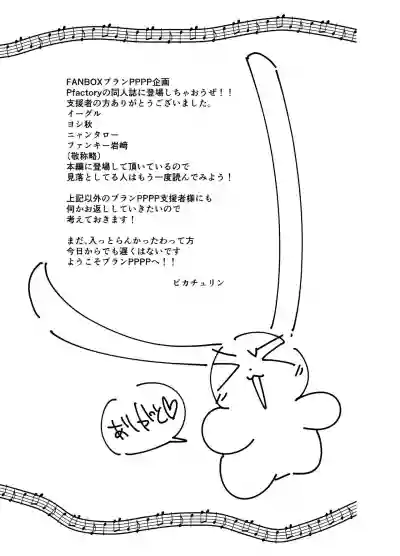 FANBOXプランPPPP企画
Pfactoryの同人誌に登場しちゃおうぜ！！
支援者の方ありがとうございました。
イーグル
ヨシ秋
ニャンタロー
ファンキー岩崎
（敬称略）
本編に登場して頂いているので
見落としてる人はもう一度読んでみよう！
上記以外のプランPPPP支援者様にも
何かお返ししていきたいので
考えておきます！
まだ、入っとらんかったわって方
今日からでも遅くはないです
ようこそプランPPPPへ！！
ピカチュリン
ありがと♡